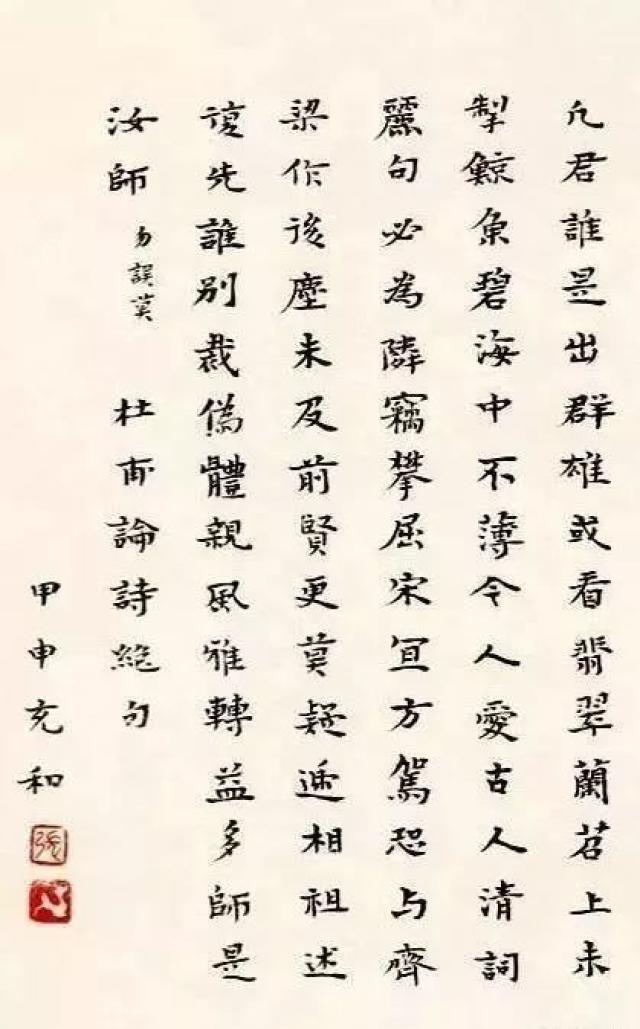 凡君誰是出群雄或看翡翠蘭苕上未
掣鯨魚碧海中不薄今人愛古人清詞
麗句必為隣竊攀屈宋宜方駕恐与齊
梁作後塵未及前賢更莫疑遞相祖述
復先誰別裁偽體親風雅轉益多師是
汝師 勿誤莫 杜甫論詩絕句
甲申充和
張